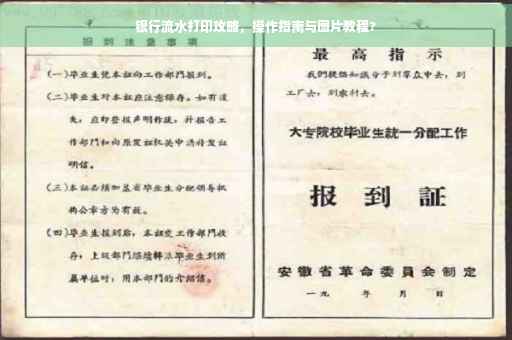 银行流水打印攻略，操作指南与图片教程？
报到注意事项
(一)毕业生凭本证向工作部门报到。
(二)毕业生对本证应注意保存。如有遗
失，应即登报声明作废，并报告工
作部门和向原发证机关申请补发证
明信。
(三)本证必须加盖省毕业生分配领导机
构公章方为有效。
(四)毕业生报到后，本证交工作部门收
存；上级部门继续转派毕业生到所
属单位时，用本部门的介绍信。
最高指示
我们提倡知识分子到群众中去，到
工厂去，到农村去。
大专院校毕业生統一分配工作
报到証
安徽省革命委員会制定
一九 年 月 日